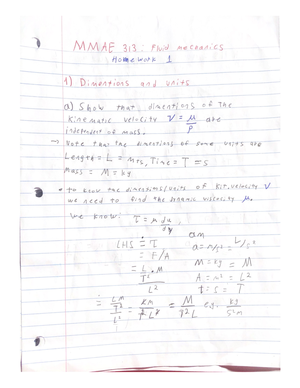 MMAE 313: Fluid mechanics
Homework 1
1) Dimentions and units
a) Show that dimentions of the
kinematic velocity ν = μ/ρ are
independent of mass.
→ Note that the dimentions of some units are
Length = L = mts, Time = T = s
Mass = M = kg
• To know the dimentions/units of Kit. velocity ν
we need to find the dynamic viscosity μ.
we know: τ = μ du/dy
LHS = τ
= F/A
a = m/s² = L/s²
= L/T² · M / L²
M = kg = M
A = m² = L²
t = s = T
= M/T²L e.g. kg/s²m